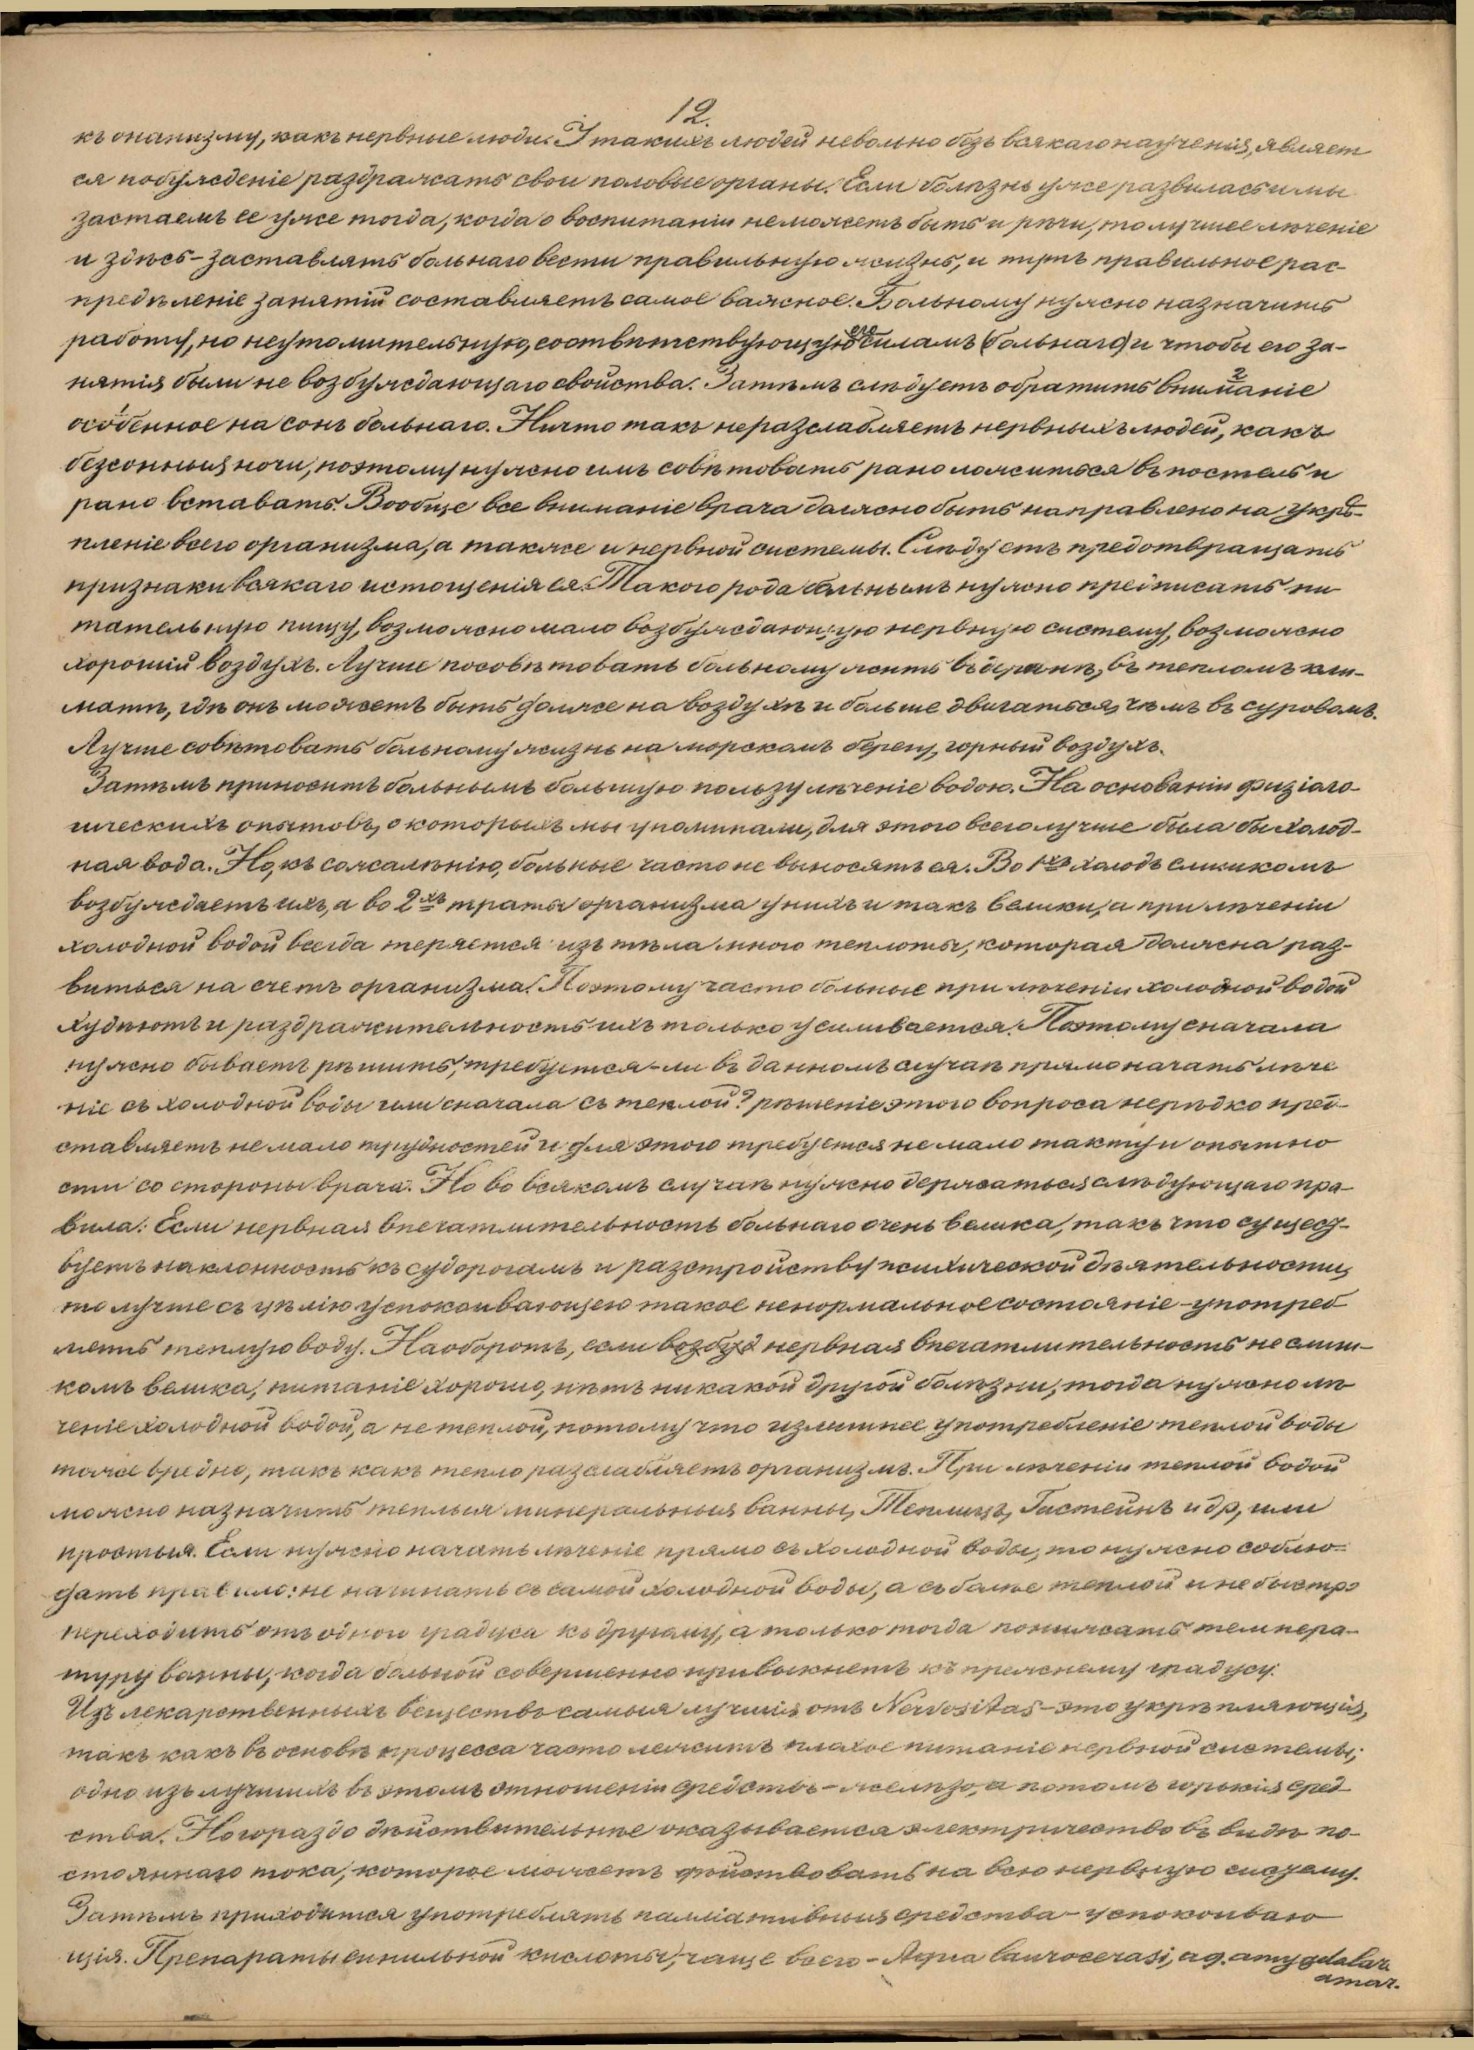 12.
къ онанизму, какъ нервные люди. У такихъ людей невольно безъ всякаго научения, являет
ся побужденіе раздражать свои половые органы. Если болѣзнь уже развилась и мы
застаемъ ее уже тогда, когда о воспитаніи не можетъ быть и рѣчи, то лучшее леченіе
и здѣсь - заставлять больнаго вести правильную жизнь, и тутъ правильное рас-
предѣленіе занятій составляетъ самое важное. Больному нужно назначить
работу, но неутомительную, соотвѣтствующую его силамъ (больнаго) и чтобы его за-
нятія были не возбуждающаго свойства. Затѣмъ слѣдуетъ обратить вниманіе 2
особенное 1 на сонъ больнаго. Ничто такъ не разслабляетъ нервныхъ людей, какъ
безсонныя ночи, поэтому нужно имъ совѣтовать рано ложиться въ постель и
рано вставать. Вообще все вниманіе врача должно быть направлено на укрѣ-
пленіе всего организма, а также и нервной системы. Слѣдуетъ предотвращать
признаки всякаго истощенія ея. Такого рода больнымъ нужно предписать пи
тательную пищу, возможно мало возбуждающую нервную систему, возможно
хорошій воздухъ. Лучше посовѣтовать больному жить въ деревнѣ, въ тепломъ кли-
матѣ, гдѣ онъ можетъ быть дольше на воздухѣ и больше двигаться, чѣмъ въ суровомъ.
Лучше совѣтовать больному жизнь на морскомъ берегу, горный воздухъ.
Затѣмъ приноситъ больнымъ большую пользу лѣченіе водою. На основаніи физіоло
гическихъ опытовъ, о которыхъ мы упоминали, для этого всего лучше была бы холод-
ная вода. Но, къ сожалѣнію, больные часто не выносятъ ея. Во 1хъ холодъ слишкомъ
возбуждаетъ ихъ, а во 2хъ траты организма у нихъ и такъ велики, а при лѣченіи
холодной водой всегда теряется изъ тѣла много теплоты, которая должна раз-
виться на счетъ организма. Поэтому часто больные при лѣченіи холодной водой
худѣютъ и раздражительность ихъ только усиливается. Поэтому сначала
нужно бываетъ рѣшить, требуется-ли въ данномъ случаѣ прямо начать лѣче
ніе съ холодной воды или сначала съ теплой? рѣшеніе этого вопроса нерѣдко пред-
ставляетъ не мало трудностей и для этого требуется не мало такту и опытно
сти со стороны врача. Но во всякомъ случаѣ нужно держаться слѣдующаго пра-
вила: Если нервная впечатлительность больнаго очень велика, такъ что сущест-
вуетъ наклонность къ судорогамъ и разстройству психической дѣятельности,
то лучше съ цѣлію успокоивающею такое ненормальное состояніе - употреб
лять теплую воду. Наоборотъ, если возбуд нервная впечатлительность не слиш-
комъ велика, питаніе хорошо, нѣтъ никакой другой болѣзни, тогда нужно лѣ
ченіе холодной водой, а не теплой, потому что излишнее употребленіе теплой воды
тоже вредно, такъ какъ тепло разслабляетъ организмъ. При лѣченіи теплой водой
можно назначить теплыя минеральныя ванны, Теплицъ, Гастейнъ и др, или
простыя. Если нужно начать лѣченіе прямо съ холодной воды, то нужно соблю-
дать правило: не начинать съ самой холодной воды, а съ болѣе теплой и не быстро
переходить отъ одного градуса къ другому, а только тогда понижать темпера-
туру ванны, когда больной совершенно привыкнетъ къ прежнему градусу.
Изъ лекарственныхъ веществъ самыя лучшія отъ Nervositas - это укрѣпляющія,
такъ какъ въ основѣ процесса часто лежитъ плохое питаніе нервной системы;
одно изъ лучшихъ въ этомъ отношеніи средствъ - желѣзо, а потомъ горькія сред
ства. Но гораздо дѣйствительнѣе оказывается электричество въ видѣ по-
стояннаго тока, которое можетъ дѣйствовать на всю нервную систему.
Затѣмъ приходится употреблять палліативныя средства - успокоиваю
щія. Препараты синильной кислоты, чаще всего - Aqua laurocerasi, aq. amygdalar.
amar.